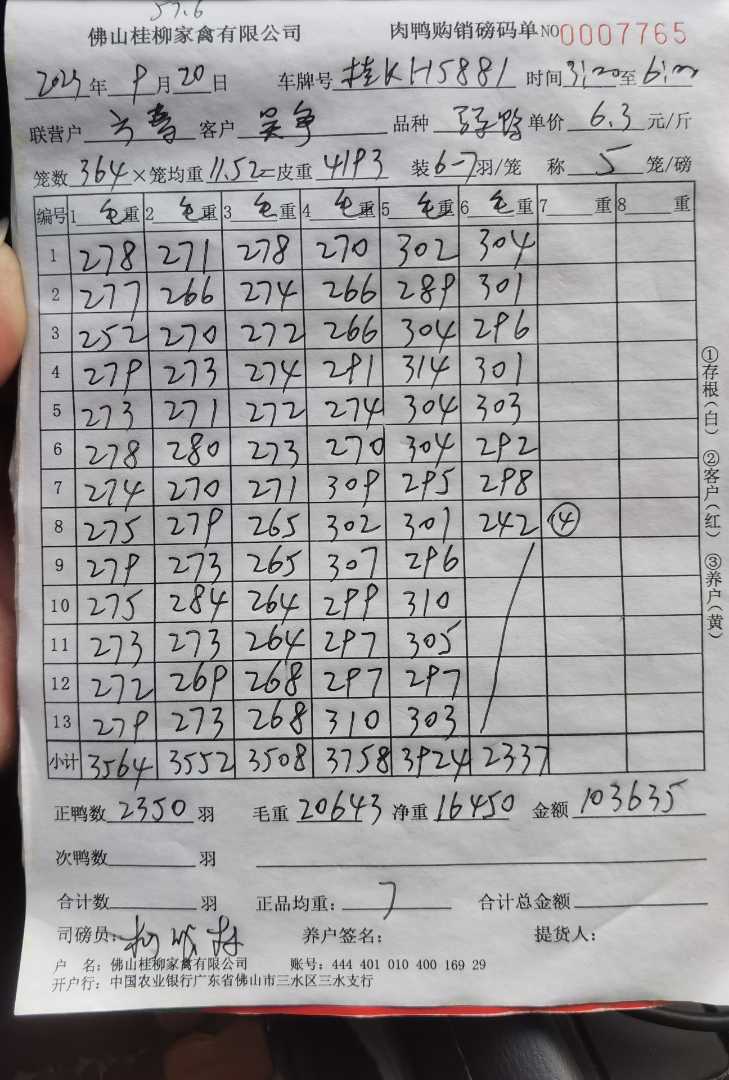 57.6
佛山桂柳家禽有限公司 肉鸭购销磅码单 NO 0007765
2025年 9月 20日 车牌号 桂KH5881 时间 3:20 至 6:20
联营户 客户 吴争 品种 单价 6.3 元/斤
笼数 364 ×笼均重 11.52 =皮重 4193 装 6-7 羽/笼 称 5 笼/磅
编号 1 毛重 2 毛重 3 毛重 4 毛重 5 毛重 6 毛重 7 重 8 重
1 278 271 278 270 302 304
2 277 266 274 266 289 301
3 252 270 272 266 304 296
4 279 273 274 291 314 301
5 273 271 272 274 304 303
6 278 280 273 270 304 292
7 274 270 271 309 295 298
8 275 279 265 302 301 242 ④
9 279 273 265 307 296
10 275 284 264 299 310
11 273 273 264 297 305
12 272 269 268 297 297
13 279 273 268 310 303
小计 3564 3552 3508 3758 3924 2337
①存根(白) ②客户(红) ③养户(黄)
正鸭数 2350 羽 毛重 20643 净重 16450 金额 103635
次鸭数 羽
合计数 羽 正品均重: 7 合计总金额
司磅员: 养户签名: 提货人:
户 名: 佛山桂柳家禽有限公司 账号: 444 401 010 400 169 29
开户行: 中国农业银行广东省佛山市三水区三水支行